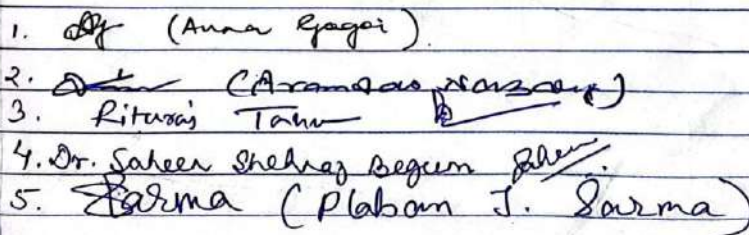 1. (Anna Gogoi)
2. (Narzary)
3. Rituraj
4. Dr. Saheen Shehnaz Begum
5. Sarma (Plaban J. Sarma)